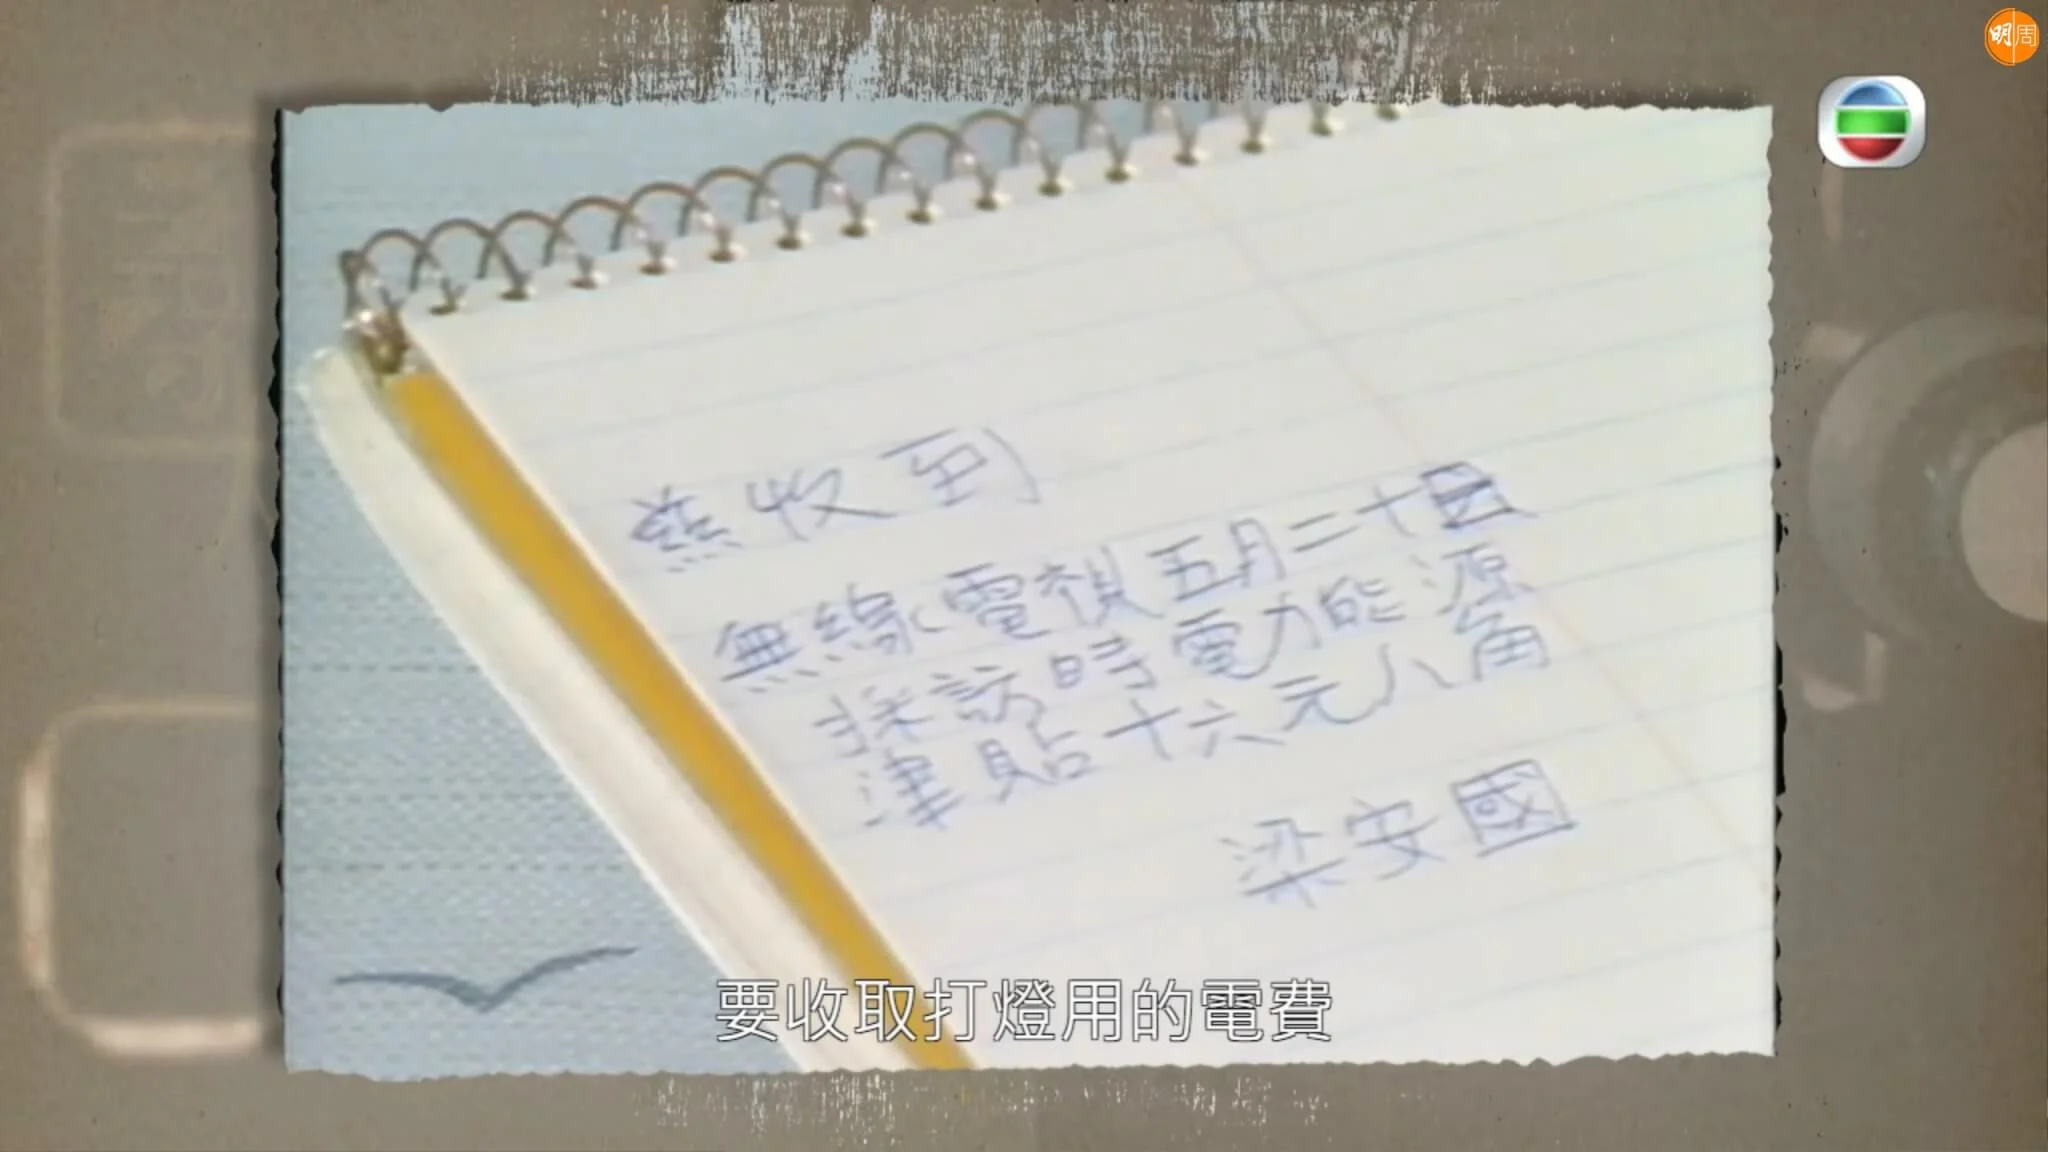 明周
茲收到
無線電視五月二十日
採訪時電力能源
津貼十六元八角
梁安國
要收取打燈用的電費